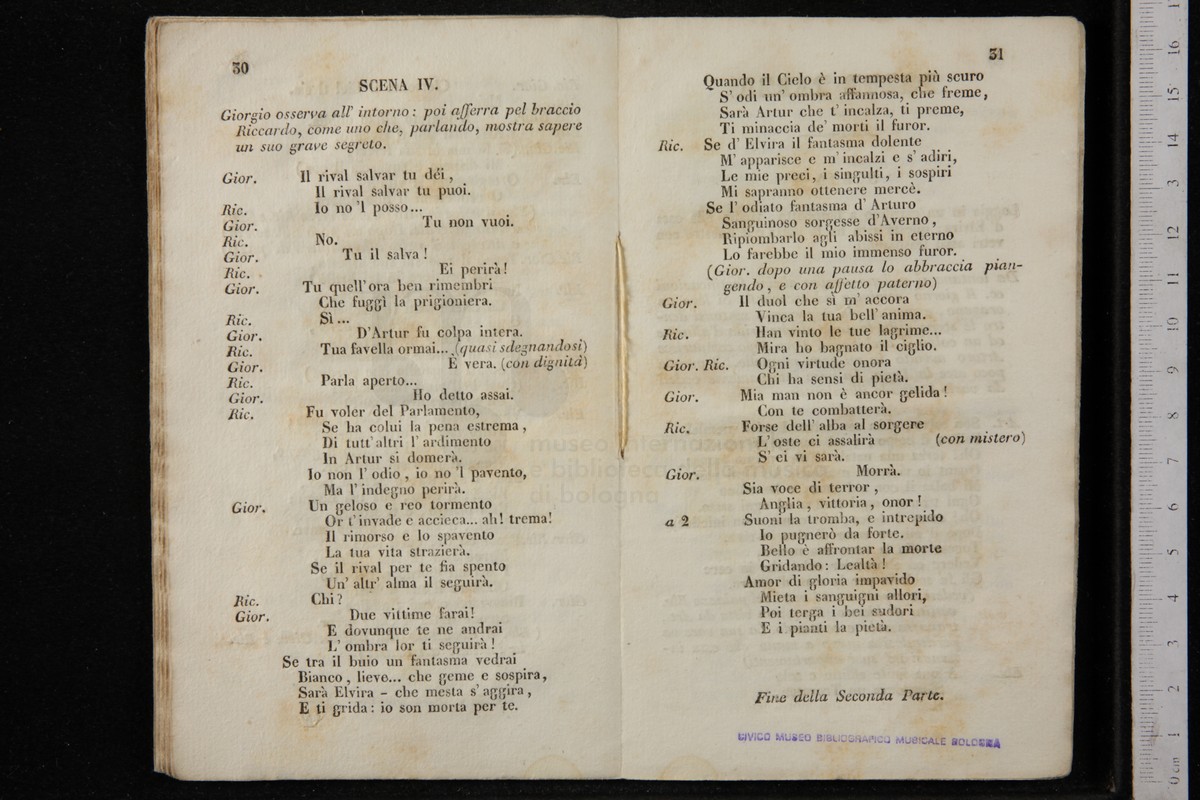 30
SCENA IV.
Giorgio osserva all' intorno: poi afferra pel braccio
Riccardo, come uno che, parlando, mostra sapere
un suo grave segreto.
Gior. Il rival salvar tu déi,
Il rival salvar tu puoi.
Ric. Io no 'l posso...
Gior. Tu non vuoi.
Ric. No.
Gior. Tu il salva!
Ric. Ei perirà!
Gior. Tu quell' ora ben rimembri
Che fuggì la prigioniera.
Ric. Sì...
Gior. D'Artur fu colpa intera.
Ric. Tua favella ormai... (quasi sdegnandosi)
Gior. È vera. (con dignità)
Ric. Parla aperto...
Gior. Ho detto assai.
Ric. Fu voler del Parlamento,
Se ha colui la pena estrema,
Di tutt' altri l' ardimento
In Artur si domerà.
Io non l' odio, io no 'l pavento,
Ma l' indegno perirà.
Gior. Un geloso e reo tormento
Or t' invade e accieca... ah! trema!
Il rimorso e lo spavento
La tua vita strazierà.
Se il rival per te fia spento
Un' altr' alma il seguirà.
Ric. Chi?
Gior. Due vittime farai!
E dovunque te ne andrai
L' ombra lor ti seguirà!
Se tra il buio un fantasma vedrai
Bianco, lieve... che geme e sospira,
Sarà Elvira - che mesta s' aggira,
E ti grida: io son morta per te.
31
Quando il Cielo è in tempesta più scuro
S' odi un' ombra affannosa, che freme,
Sarà Artur che t' incalza, ti preme,
Ti minaccia de' morti il furor.
Ric. Se d' Elvira il fantasma dolente
M' apparisce e m' incalzi e s' adiri,
Le mie preci, i singulti, i sospiri
Mi sapranno ottenere mercè.
Se l' odiato fantasma d' Arturo
Sanguinoso sorgesse d'Averno,
Ripiombarlo agli abissi in eterno
Lo farebbe il mio immenso furor.
(Gior. dopo una pausa lo abbraccia pian-
gendo, e con affetto paterno)
Gior. Il duol che sì m' accora
Vinca la tua bell' anima.
Ric. Han vinto le tue lagrime...
Mira ho bagnato il ciglio.
Gior. Ric. Ogni virtude onora
Chi ha sensi di pietà.
Gior. Mia man non è ancor gelida!
Con te combatterà.
Ric. Forse dell' alba al sorgere
L' oste ci assalirà (con mistero)
S' ei vi sarà.
Gior. Morrà.
Sia voce di terror,
Anglia, vittoria, onor!
a 2 Suoni la tromba, e intrepido
Io pugnerò da forte.
Bello è affrontar la morte
Gridando: Lealtà!
Amor di gloria impavido
Mieta i sanguigni allori,
Poi terga i bei sudori
E i pianti la pietà.
Fine della Seconda Parte.
CIVICO MUSEO BIBLIOGRAFICO MUSICALE BOLOGNA
museo internazion
e biblioteca della musica
di bologna
0 cm 1 2 3 4 5 6 7 8 9 10 11 12 13 14 15 16